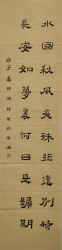 水國秋風夜殊非遠別時
長安如夢裏何日是歸期